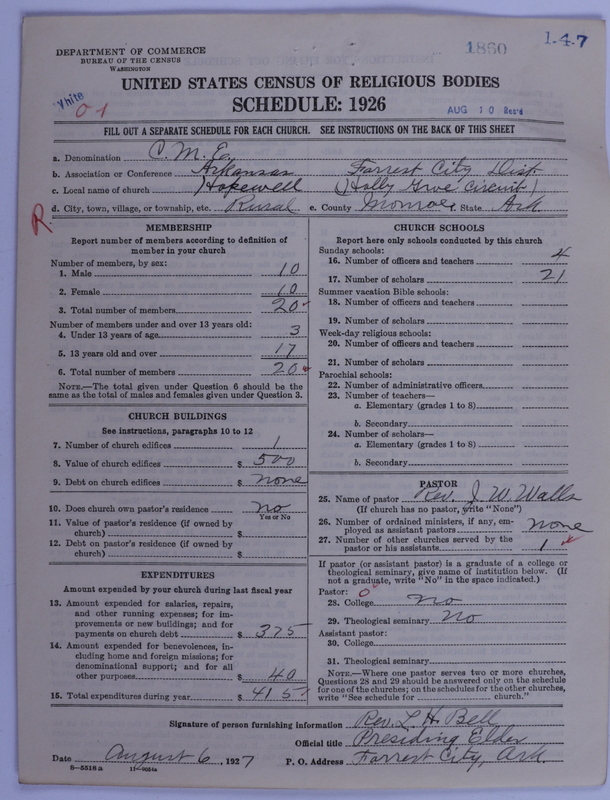 DEPARTMENT OF COMMERCE
BUREAU OF THE CENSUS
WASHINGTON
1860
1-4-7
UNITED STATES CENSUS OF RELIGIOUS BODIES
White
01
SCHEDULE: 1926
AUG 10 Rec'd
FILL OUT A SEPARATE SCHEDULE FOR EACH CHURCH. SEE INSTRUCTIONS ON THE BACK OF THIS SHEET
a. Denomination C. M. E.
b. Association or Conference Arkansas Forrest City Dist.
c. Local name of church Hopewell (Holly Grve circuit)
d. City, town, village, or township, etc. Rural e. County Monroe f. State Ark
R.
MEMBERSHIP
Report number of members according to definition of
member in your church
Number of members, by sex:
1. Male 10
2. Female 10
3. Total number of members 20
Number of members under and over 13 years old:
4. Under 13 years of age 3
5. 13 years old and over 17
6. Total number of members 20
NOTE.—The total given under Question 6 should be the
same as the total of males and females given under Question 3.
CHURCH BUILDINGS
See instructions, paragraphs 10 to 12
7. Number of church edifices 1
8. Value of church edifices $ 500
9. Debt on church edifices $ none
10. Does church own pastor's residence no
Yes or No
11. Value of pastor's residence (if owned by
church) $
12. Debt on pastor's residence (if owned by
church) $
EXPENDITURES
Amount expended by your church during last fiscal year
13. Amount expended for salaries, repairs,
and other running expenses; for im-
provements or new buildings; and for
payments on church debt $ 375
14. Amount expended for benevolences, in-
cluding home and foreign missions; for
denominational support; and for all
other purposes $ 40
15. Total expenditures during year $ 415
CHURCH SCHOOLS
Report here only schools conducted by this church
Sunday schools:
16. Number of officers and teachers 4
17. Number of scholars 21
Summer vacation Bible schools:
18. Number of officers and teachers
19. Number of scholars
Week-day religious schools:
20. Number of officers and teachers
21. Number of scholars
Parochial schools:
22. Number of administrative officers
23. Number of teachers—
a. Elementary (grades 1 to 8)
b. Secondary
24. Number of scholars—
a. Elementary (grades 1 to 8)
b. Secondary
PASTOR
25. Name of pastor Rev. J. W. Walls
(If church has no pastor, write "None")
26. Number of ordained ministers, if any, em-
ployed as assistant pastors none
27. Number of other churches served by the
pastor or his assistants 1
If pastor (or assistant pastor) is a graduate of a college or
theological seminary, give name of institution below. (If
not a graduate, write "No" in the space indicated.)
Pastor: 0
28. College no
29. Theological seminary no
Assistant pastor:
30. College
31. Theological seminary
NOTE.—Where one pastor serves two or more churches,
Questions 28 and 29 should be answered only on the schedule
for one of the churches; on the schedules for the other churches,
write "See schedule for church."
Signature of person furnishing information Rev. L. H. Bell
Official title Presiding Elder
Date August 6, 1927 P. O. Address Forrest City, Ark
8-5518a 11-9024a